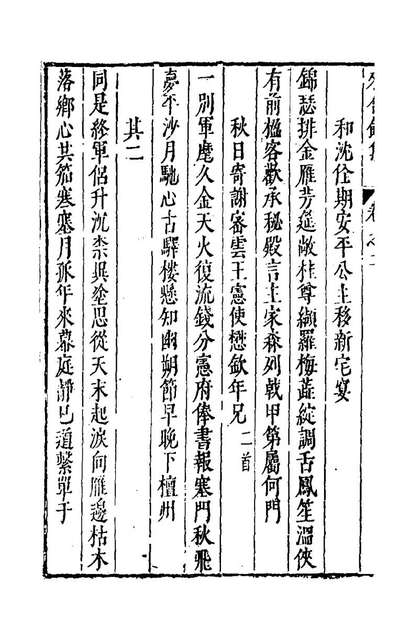 和沈佺期安平公主移新宅宴
錦瑟排金雁芳筵敞桂尊纈羅梅蕋綻調舌鳳笙溫俠
有前楹客歡承秘殿言主家森列戟甲第屬何門
秋日寄謝密雲王憲使懋欽年兄二首
一別軍麾久金天火復流錢分憲府俸書報塞門秋飛
夢平沙月馳心古驛樓懸知幽朔節早晚下檀州
其二
同是終軍侶升沉柰異塗思從天末起淚向雁邊枯木
落鄉心共笳寒塞月孤年來幕庭靜已道繫單于